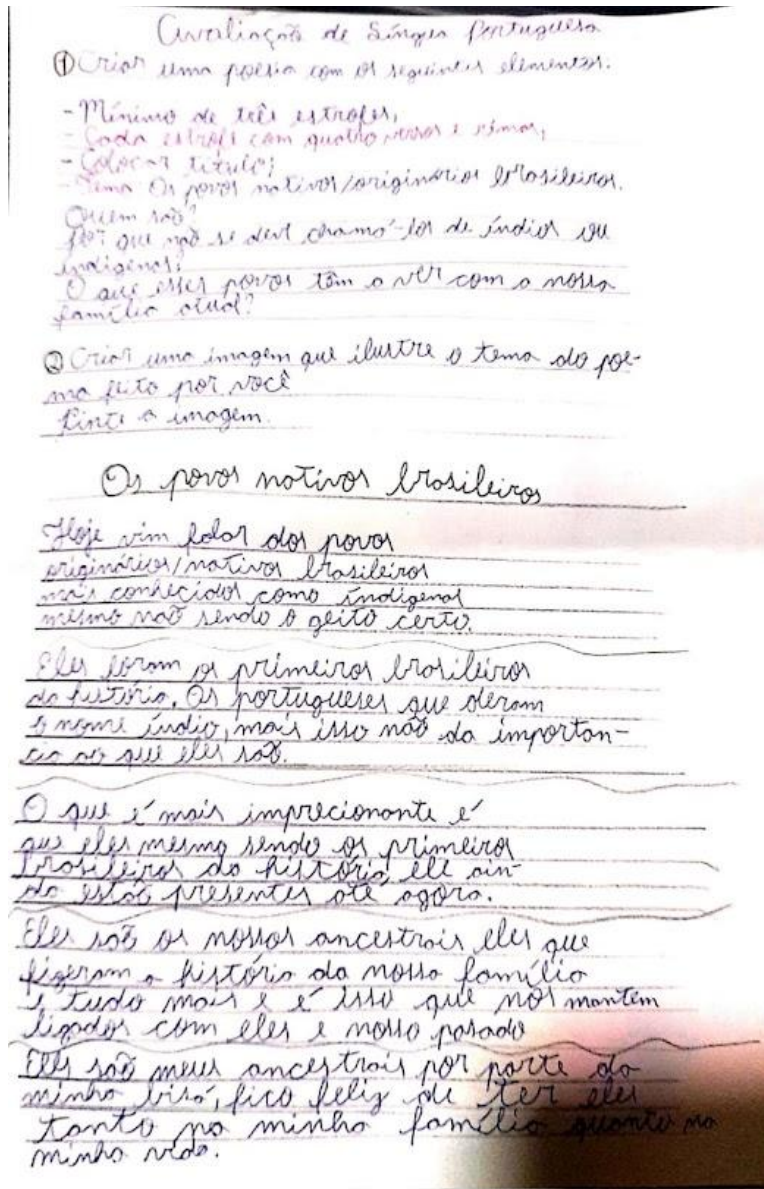 Avaliação de Língua Portuguesa
① Criar uma poesia com os seguintes elementos:
- Mínimo de três estrofes,
- Cada estrofe com quatro versos e rimas,
- Colocar título;
- Tema Os povos nativos/originários brasileiros.
Quem são?
Por que não se deve chamá-los de índios ou
indígenas?
O que esses povos têm a ver com a nossa
família atual?
② Criar uma imagem que ilustre o tema do poe-
ma feito por você
Pinte a imagem.
Os povos nativos brasileiros
Hoje vim falar dos povos
originários/nativos brasileiros
mais conhecidos como indígenas
mesmo não sendo o geito certo.
Eles foram os primeiros brasileiros
da história. Os portugueses que deram
o nome índio, mais isso não da importan-
cia ao que eles são.
O que é mais imprecionante é
que eles mesmo sendo os primeiros
brasileiros da história, ele ain-
da estão presentes até agora.
Eles são os nossos ancestrais eles que
fizeram a história da nossa família
e tudo mais e é isso que nós mantém
ligados com eles e nosso pasado
Eles são meus ancestrais por parte da
minha bisó, fico feliz de ter eles
tanto na minha família quanto na
minha vida.